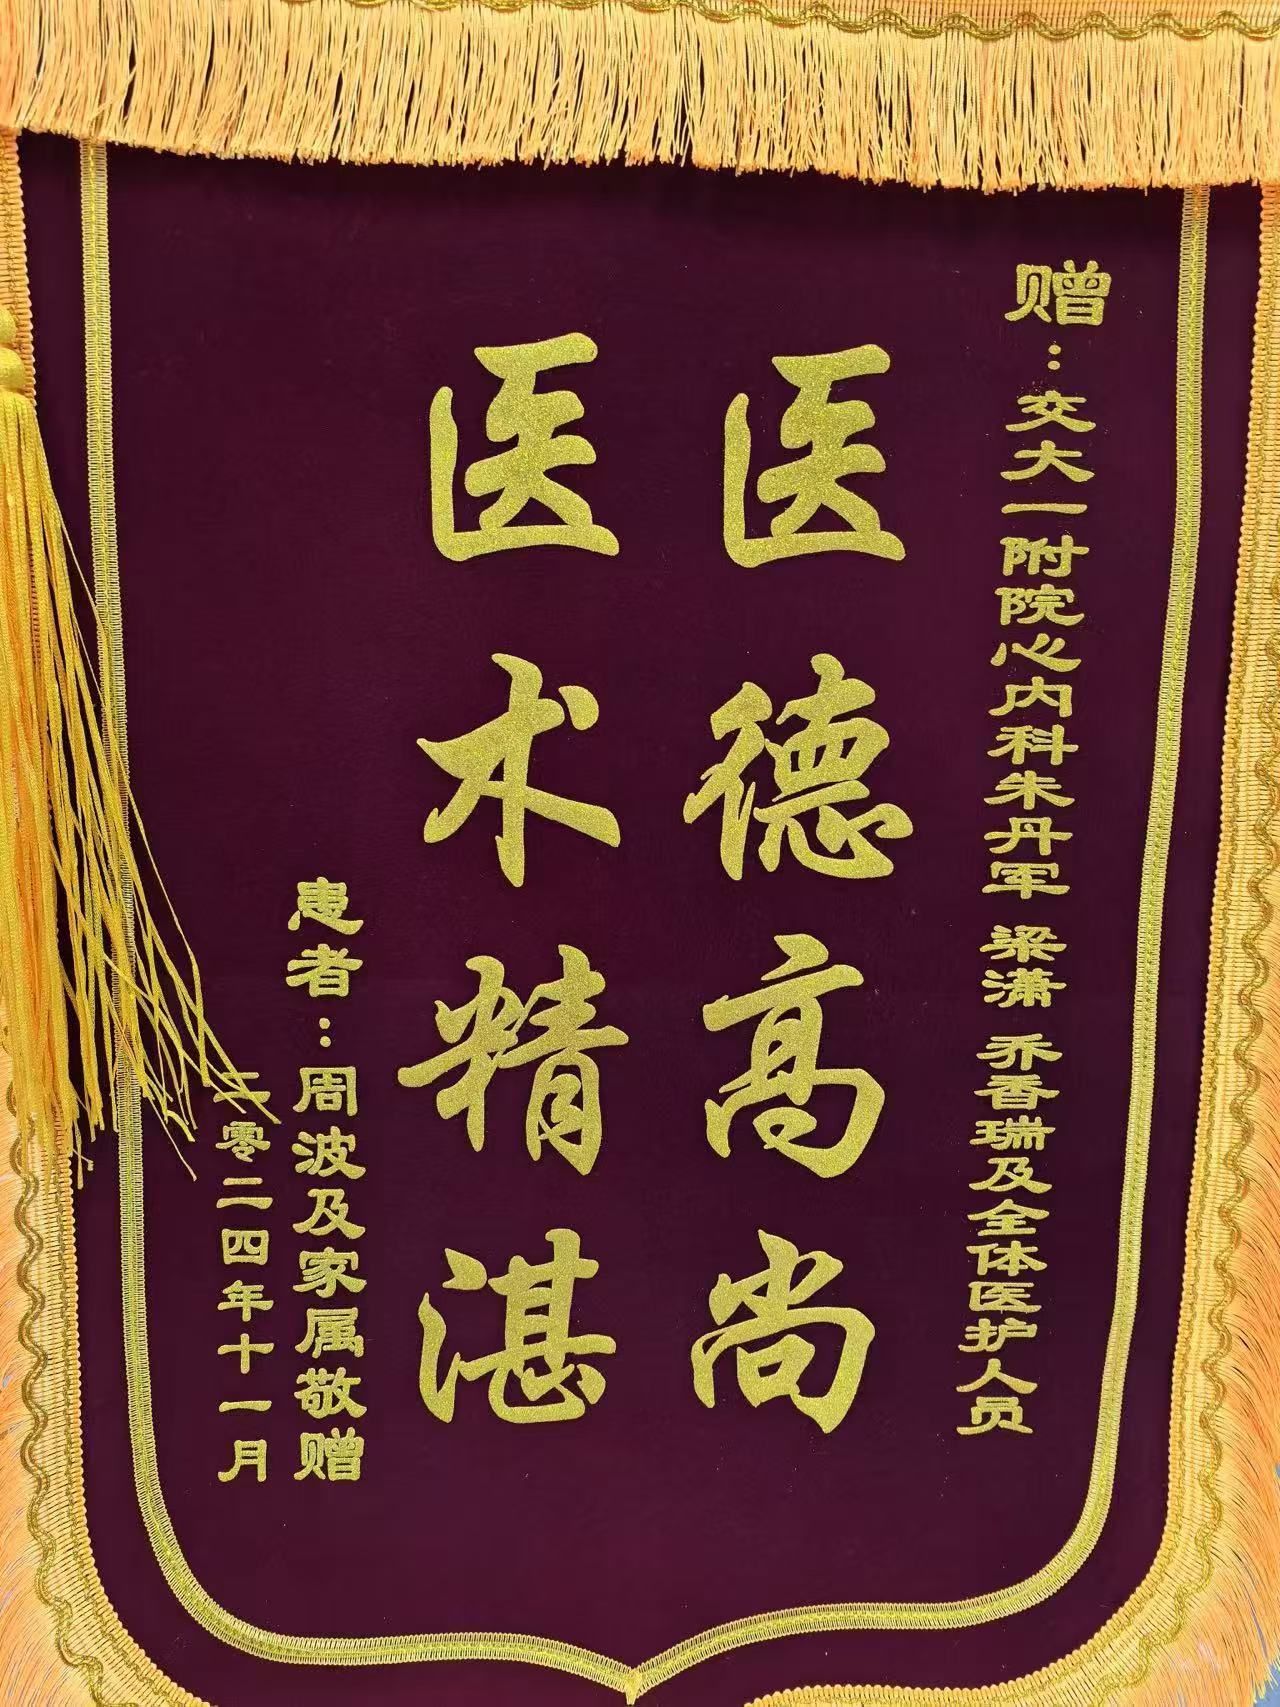 赠：交大一附院心内科朱丹军 梁潇 乔香瑞及全体医护人员
医德高尚
医术精湛
患者：周波及家属敬赠
二零二四年十一月